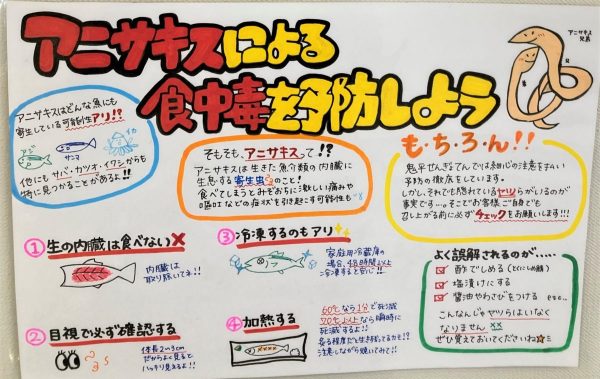 アニサキスによる
食中毒を予防しよう
アニサキス
兄弟
アニサキスはどんな魚にも
寄生している可能性アリ!?
アジ
サンマ
イカ
他にもサバ・カツオ・イワシからも
特に見つかることがあるよ!!
そもそも、アニサキスって!?
アニサキスは生きた魚介類の内臓に
生息する寄生虫のこと!
食べてしまうとみぞおちに激しい痛みや
嘔吐などの症状を引き起こす可能性も…
も・ち・ろ・ん!!
鬼平ぜんぎょてんでは細心の注意をはらい
予防の徹底をしています。
しかし、それでも隠れているヤツらがいるのが
事実です…。そこでお客様ご自身でも
召し上がる前に必ずチェックをお願いします!!!
①生の内臓は食べない✕
内臓は
取り除いてネ!!
②目視で必ず確認する
体長2〜3cm
だからよく見ると
ハッキリ見えるよ!
③冷凍するのもアリ
家庭用冷蔵庫の
場合、48時間以上
冷凍すると安心!!
④加熱する
60℃なら1分で死滅
70℃以上なら瞬時に
死滅するよ!!
注意しながら焼いてみて!!
よく誤解されるのが.....
酢でしめる(とくにしめ鯖)
塩漬けにする
醤油やわさびをつける etc..
こんなんじゃヤツらはいなく
なりません ××
ぜひ覚えておいてくださいね☆